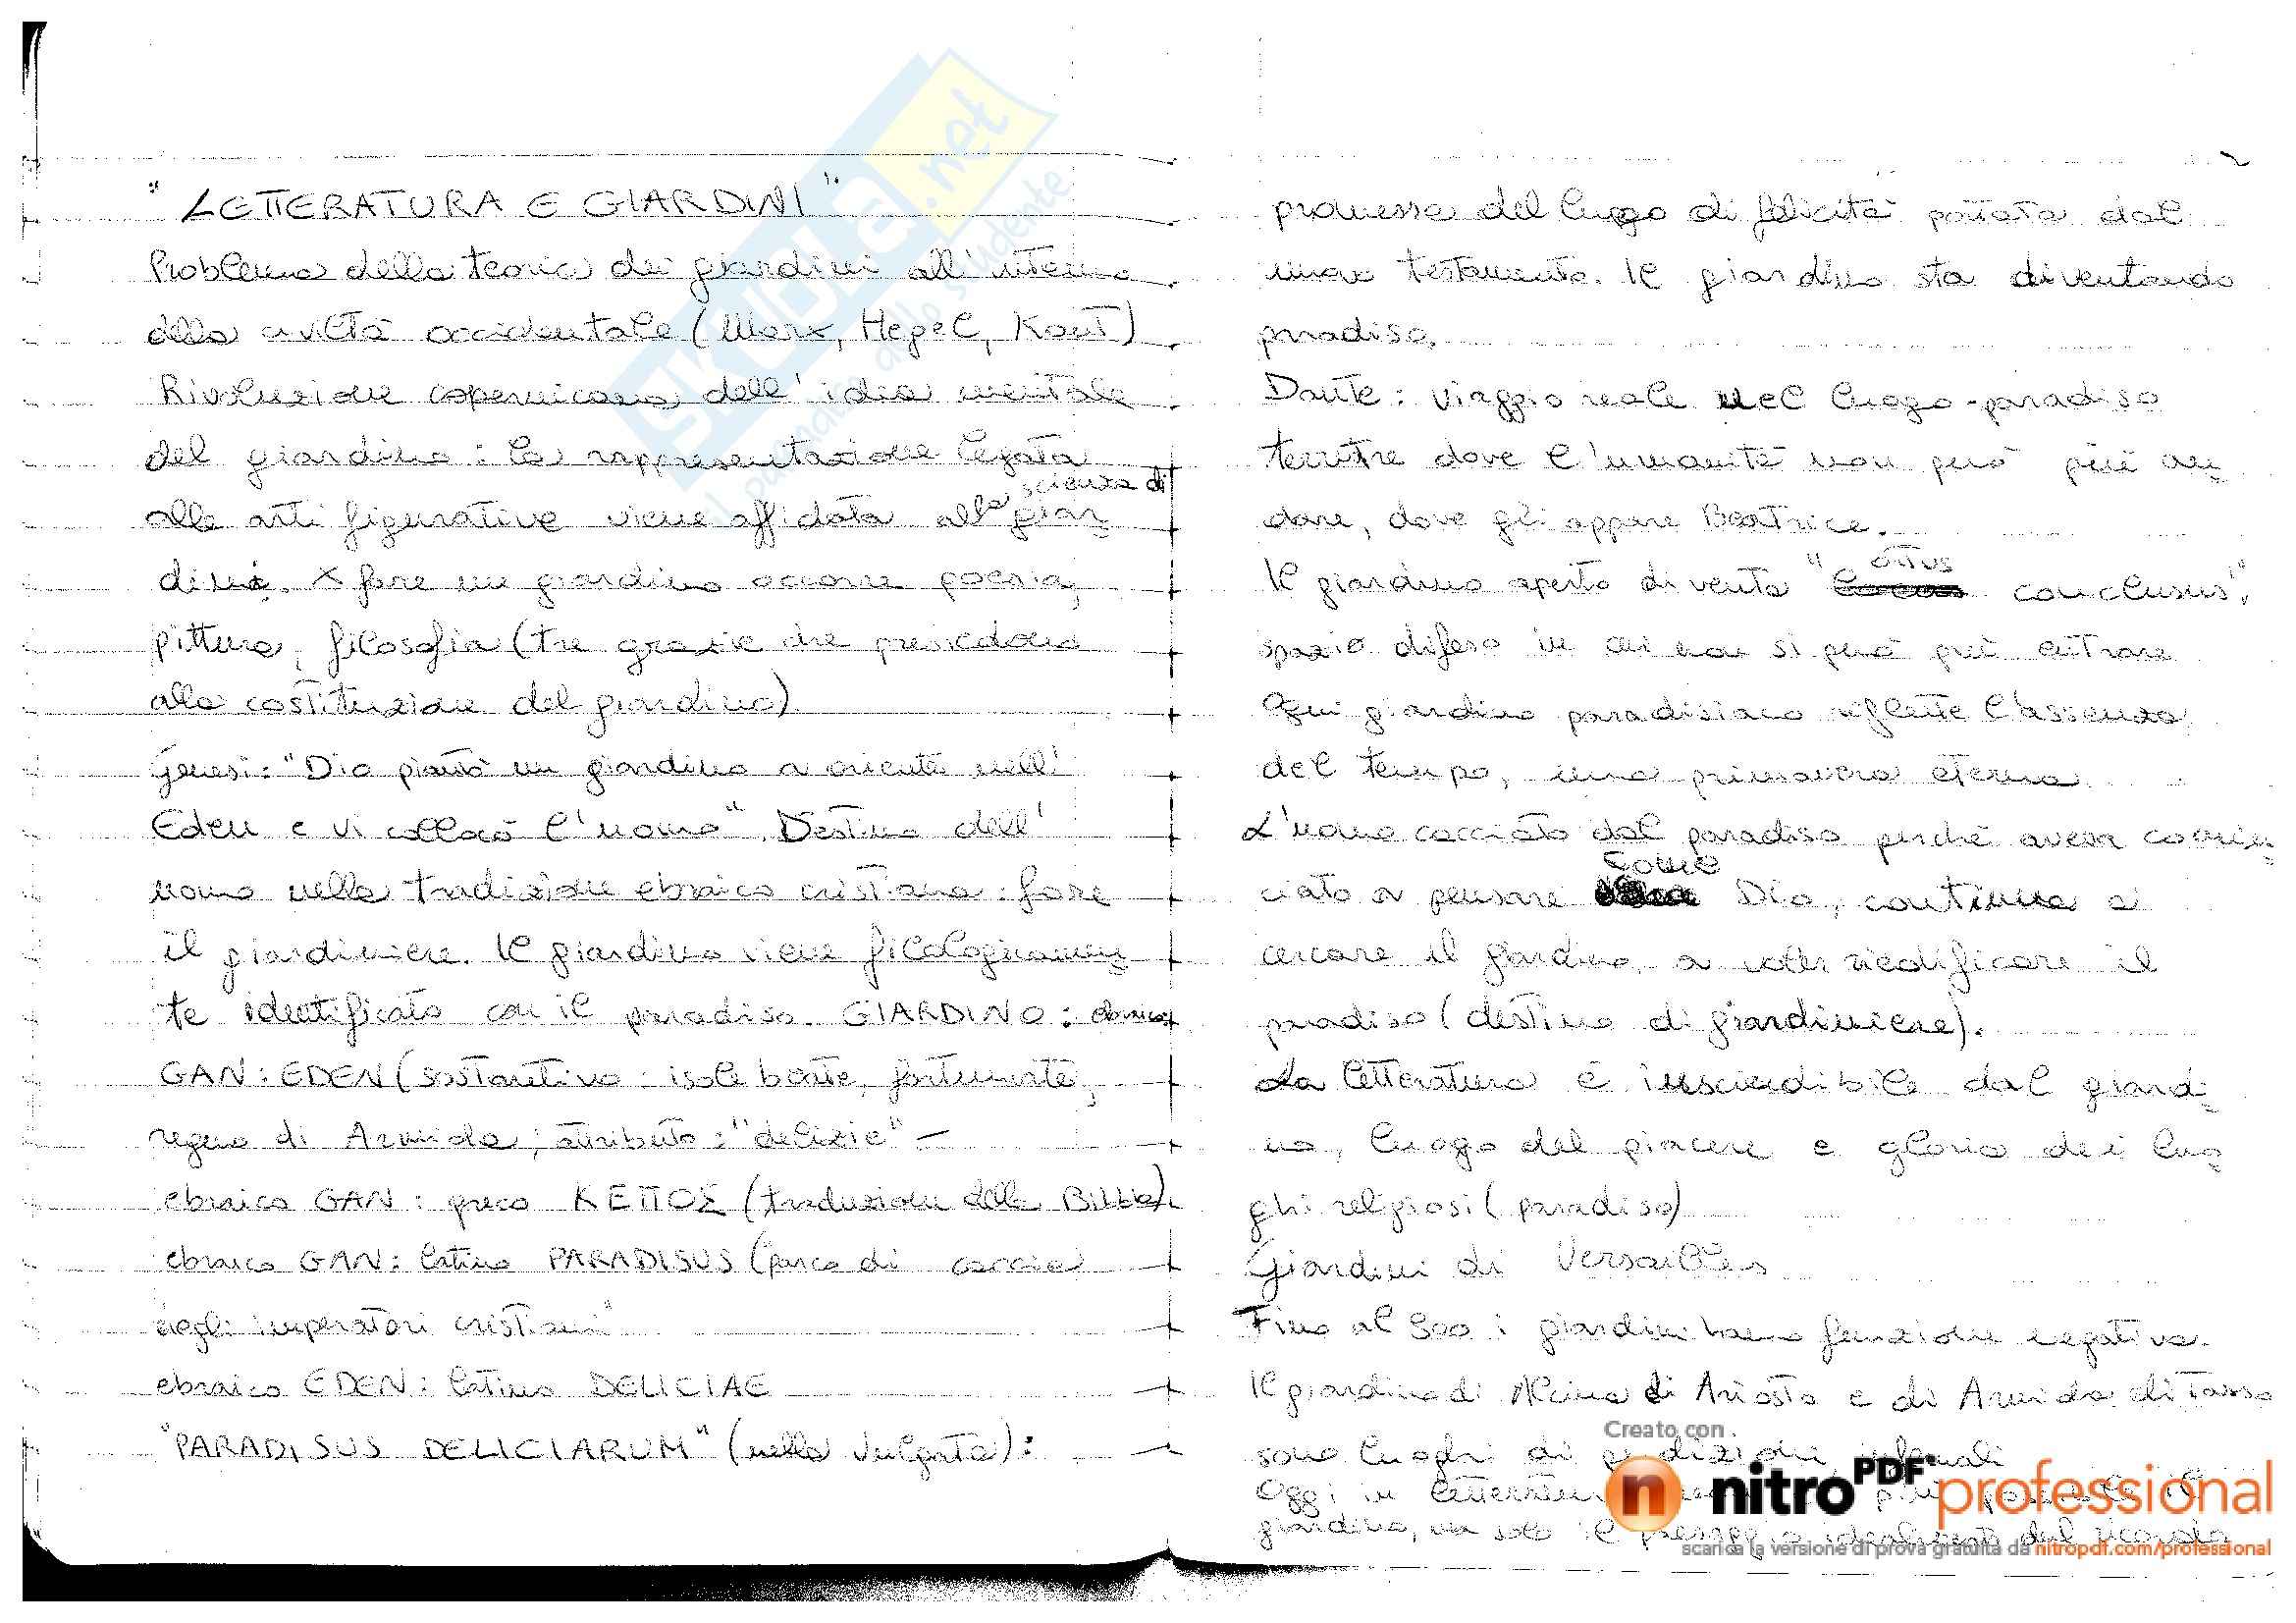 "LETTERATURA E GIARDINI"
Problema della teoria dei giardini all'interno
della civiltà occidentale (Marx, Hegel, Kant)
Rivoluzione copernicana dell'idea mentale
del giardino: la rappresentazione legata
alle arti figurative viene affidata alla scienza di giar
dini. x fare un giardino occorre poesia,
pittura, filosofia (tre grazie che presiedono
alla costituzione del giardino)
Genesi: "Dio piantò un giardino a oriente nell'
Eden e vi collocò l'uomo". Destino dell'
uomo nella tradizione ebraico cristiana: fare
il giardiniere. Il giardino viene filologicamen
te identificato con il paradiso. GIARDINO: ebraico
GAN: EDEN (sostantivo: isole beate, fortunate,
regno di Armida; attributo: "delizie" –
ebraico GAN: greco ΚΕΠΟΣ (traduzione della Bibbia)
ebraico GAN: latino PARADISUS (parco di caccia
degli imperatori cristiani"
ebraico EDEN: latino DELICIAE
"PARADISUS DELICIARUM" (nella Vulgata):
2
promessa del luogo di felicità portata dal
nuovo testamento. Il giardino sta diventando
paradiso.
Dante: viaggio reale nel luogo-paradiso
terrstre dove l'umanità non può più an
dare, dove gli appare Beatrice.
Il giardino aperto diventa "ortus conclusus",
spazio difeso in cui non si può più entrare
Ogni giardino paradisiaco riflette l'assenza
del tempo, una primavera eterna
L'uomo cacciato dal paradiso perché aveva comin
ciato a pensare come Dio, continua a
cercare il giardino, a voler riedificare il
paradiso (destino di giardiniere).
La letteratura è inscindibile dal giardi
no, luogo del piacere e gloria dei luo
ghi religiosi (paradiso)
Giardini di Versailles
Fino al 900 i giardini hanno funzione negativa.
Il giardino di Alcina di Ariosto e di Armida di Tasso
sono luoghi di perdizione, infernali
Oggi in letteratura più possibile il
giardino, ma solo il paesaggio idealizzato dal ricordo
SKUOLA.net
il paradiso dello studente
Creato con
nitro PDF professional
scarica la versione di prova gratuita da nitropdf.com/professional